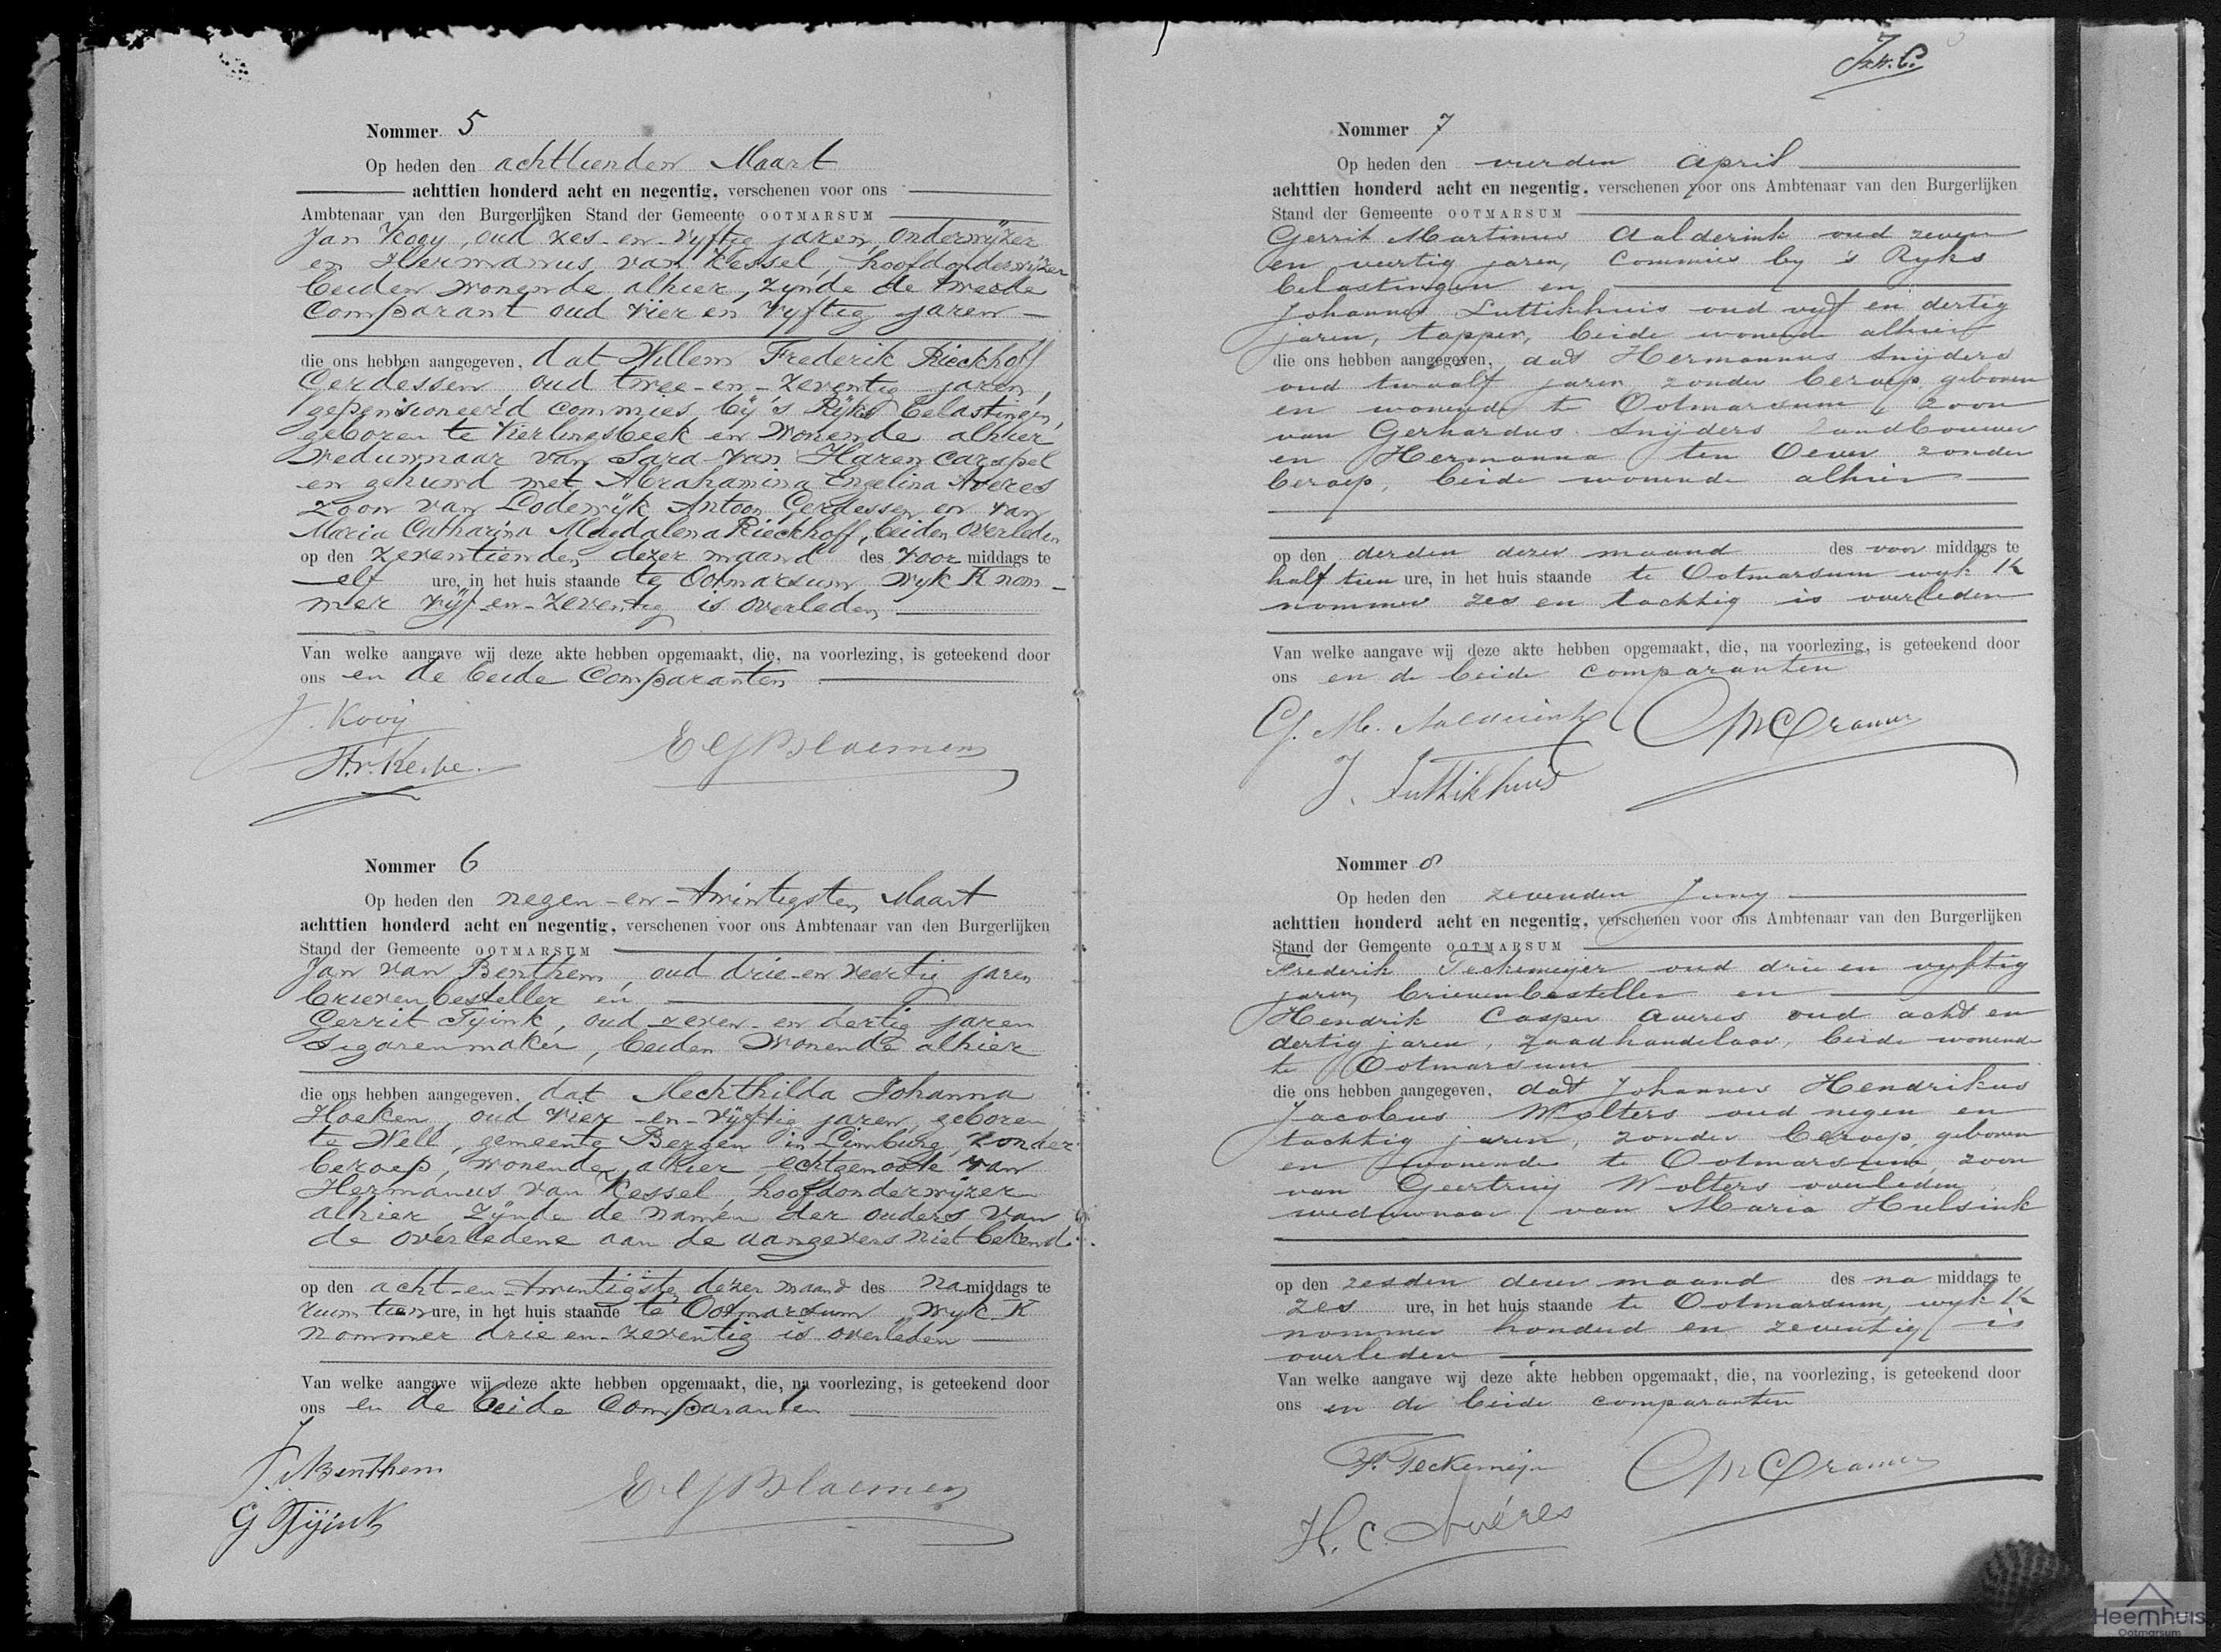 Nommer 5
Op heden den achttienden Maart
achttien honderd acht en negentig, verschenen voor ons
Ambtenaar van den Burgerlijken Stand der Gemeente OOTMARSUM
Jan Kooy, oud zes-en-vyftig jaren, onderwijzer
en Hermanus van Kessel, hoofdonderwijzer
beiden wonende alhier, zynde de tweede
Comparant oud vier en vyftig jaren
die ons hebben aangegeven, dat Willem Frederik Rieckhoff
Gerdessen, oud twee-en-zeventig jaren,
gepensioneerd commies bij 's Rijks belastingen,
geboren te Vierlingsbeek en wonende alhier
weduwnaar van Sara van Haren Carspel
en gehuwd met Abrahamina Engelina Averes
zoon van Lodewijk Antoon Gerdessen en van
Maria Catharina Magdalena Rieckhoff, beiden overleden
op den zeventienden dezer maand des voor middags te
elf ure, in het huis staande te Ootmarsum wyk K nom-
mer vijf-en-zeventig is overleden
Van welke aangave wij deze akte hebben opgemaakt, die, na voorlezing, is geteekend door
ons en de beide Comparanten
J. Kooij
Nommer 6
Op heden den negen-en-twintigsten Maart
achttien honderd acht en negentig, verschenen voor ons Ambtenaar van den Burgerlijken
Stand der Gemeente OOTMARSUM
Jan van Benthem, oud drie-en veertig jaren
brievenbesteller en
Gerrit Tyink, oud zeven-en dertig jaren
Sigarenmaker, beiden wonende alhier
die ons hebben aangegeven, dat Mechthilda Johanna
Hoeken, oud vier-en-vijftig jaren, geboren
te Well, gemeente Bergen in Limburg, zonder
beroep, wonende alhier echtgenoote van
Hermanus van Kessel, hoofdonderwijzer
alhier zijnde de namen der ouders van
de overledene aan de aangevers niet bekend
op den acht-en-twintigste dezer maand des namiddags te
ruim tien ure, in het huis staande te Ootmarsum wyk K
nommer drie en-zeventig is overleden
Van welke aangave wij deze akte hebben opgemaakt, die, na voorlezing, is geteekend door
ons en de beide Comparanten
J. v Benthem
G Tijink
Nommer 7
Op heden den vierden April
achttien honderd acht en negentig, verschenen voor ons Ambtenaar van den Burgerlijken
Stand der Gemeente OOTMARSUM
Gerrit Martinus Aalderink oud zeven
en veertig jaren, Commies by 's Ryks
belastingen en
Johannes Luttikhuis oud vijf en dertig
jaren, tapper, beide wonende alhier
die ons hebben aangegeven, dat Hermannus Snijders
oud twaalf jaren zonder beroep, geboren
en wonende te Ootmarsum, zoon
van Gerhardus Snijders landbouwer
en Hermanna ten Oever zonder
beroep, beide wonende alhier
op den derden dezer maand des voor middags te
half tien ure, in het huis staande te Ootmarsum wyk K
nommer zes en tachtig is overleden
Van welke aangave wij deze akte hebben opgemaakt, die, na voorlezing, is geteekend door
ons en de beide comparanten
G. M. Aalderink
J. Luttikhuis
Nommer 8
Op heden den zevenden Juny
achttien honderd acht en negentig, verschenen voor ons Ambtenaar van den Burgerlijken
Stand der Gemeente OOTMARSUM
Frederik Teckemeijer oud drie en vyftig
jaren, brievenbesteller en
Hendrik Casper Averes oud acht en
dertig jaren, zaadhandelaar, beide wonende
te Ootmarsum
die ons hebben aangegeven, dat Johannes Hendrikus
Jacobus Wolters oud negen en
tachtig jaren, zonder beroep, geboren
en wonende te Ootmarsum, zoon
van Geertruij Wolters overleden
weduwnaar van Maria Hulsink
op den zesden dezer maand des na middags te
zes ure, in het huis staande te Ootmarsum, wyk K
nommer honderd en zeventig is
overleden
Van welke aangave wij deze akte hebben opgemaakt, die, na voorlezing, is geteekend door
ons en de beide comparanten
F. Teckemeijer
H. C. Avéres
Heemhuis
Ootmarsum